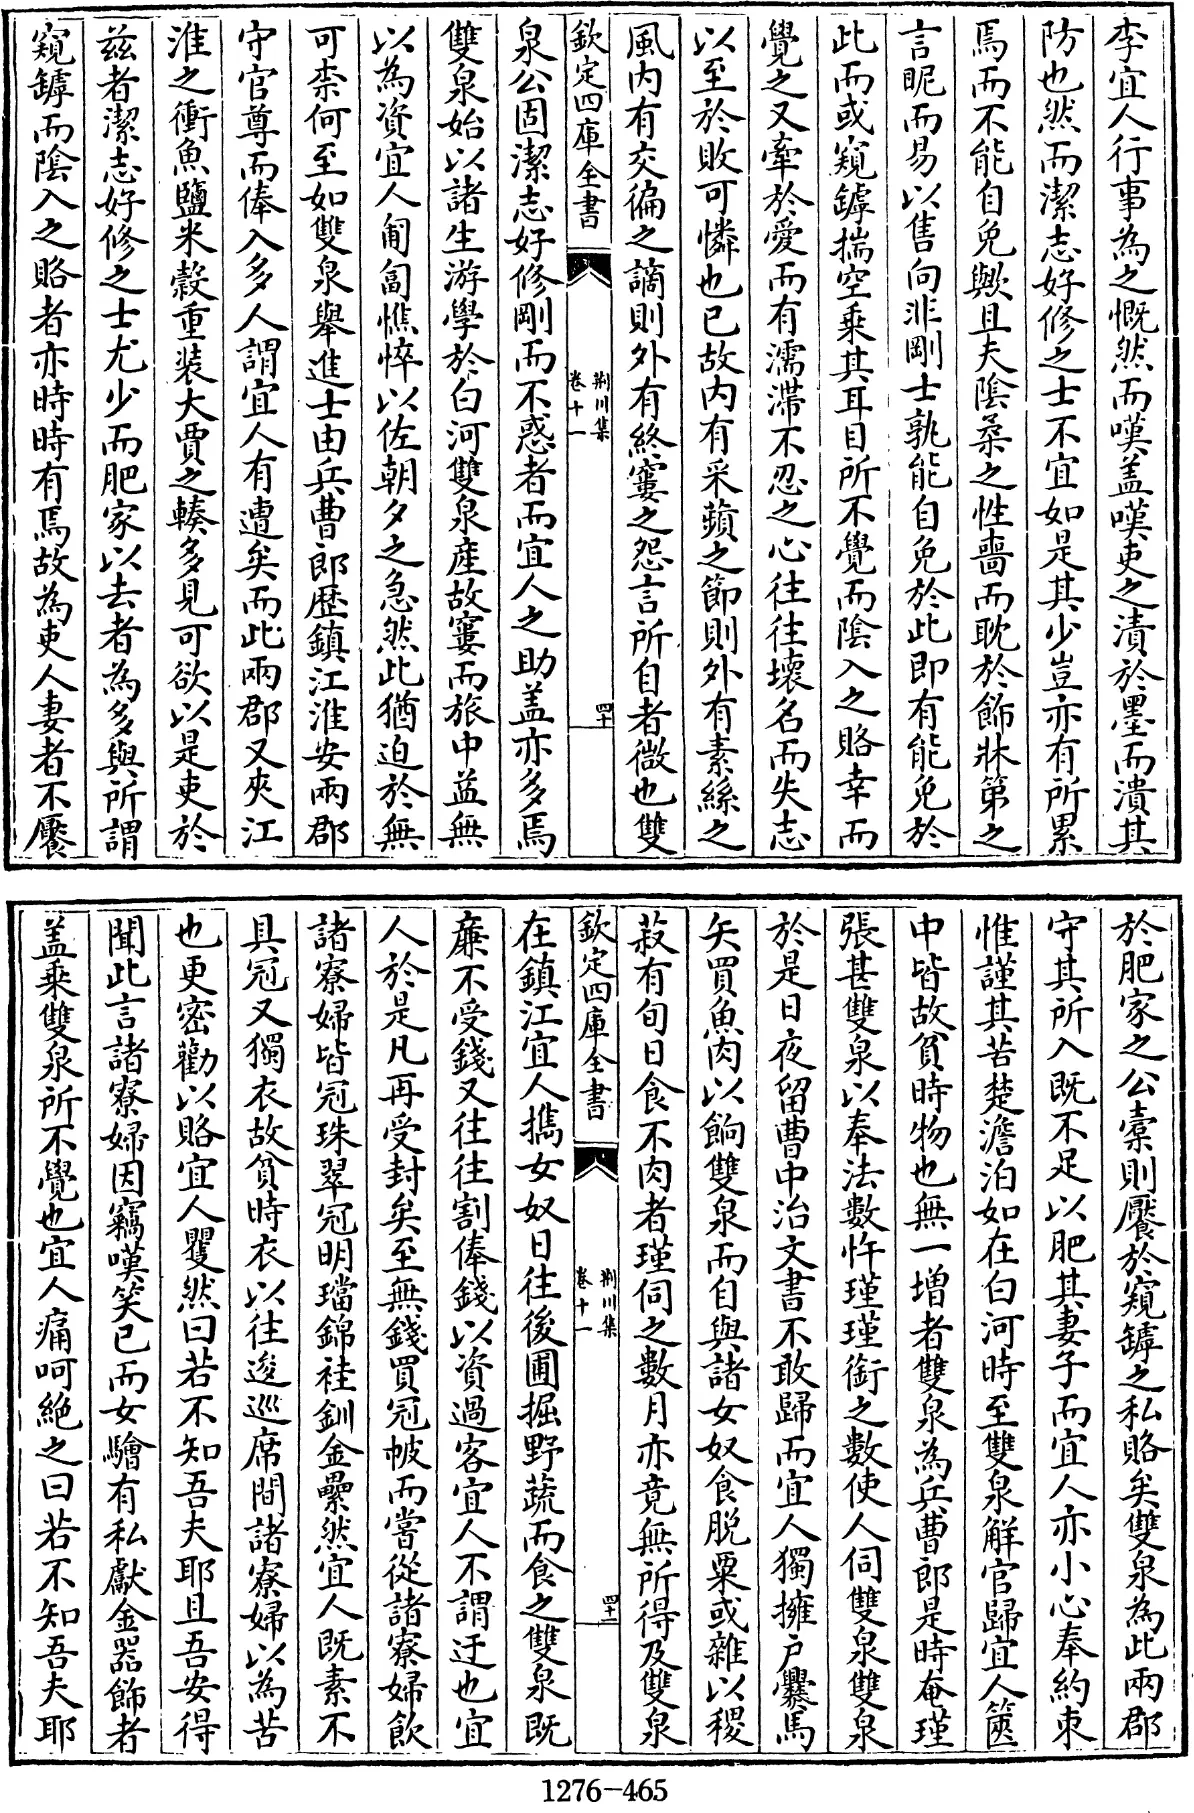 李宜人行事為之慨然而嘆盖嘆吏之漬於墨而潰其
防也然而潔志好修之士不宜如是其少豈亦有所累
焉而不能自免歟且夫陰柔之性嗇而耽於飾牀笫之
言昵而易以售向非剛士孰能自免於此即有能免於
此而或窺罅揣空乘其耳目所不覺而陰入之賂幸而
覺之又牽於愛而有濡滯不忍之心往往壞名而失志
以至於敗可憐也已故内有采蘋之節則外有素絲之
風内有交徧之讁則外有終窶之怨言所自者微也雙
欽定四庫全書
荆川集
卷十一
四十
泉公固潔志好修剛而不惑者而宜人之助盖亦多焉
雙泉始以諸生游學於白河雙泉産故窶而旅中益無
以為資宜人匍匐憔悴以佐朝夕之急然此猶迫於無
可柰何至如雙泉舉進士由兵曹郎歴鎮江淮安兩郡
守官尊而俸入多人謂宜人有遭矣而此兩郡又夾江
淮之衝魚鹽米穀重装大賈之輳多見可欲以是吏於
兹者潔志好修之士尤少而肥家以去者為多與所謂
窺罅而陰入之賂者亦時時有焉故為吏人妻者不饜
於肥家之公橐則饜於窺罅之私賂矣雙泉為此兩郡
守其所入既不足以肥其妻子而宜人亦小心奉約束
惟謹其苦楚澹泊如在白河時至雙泉解官歸宜人篋
中皆故貧時物也無一增者雙泉為兵曹郎是時奄瑾
張甚雙泉以奉法數忤瑾瑾銜之數使人伺雙泉雙泉
於是日夜留曹中治文書不敢歸而宜人獨擁户爨馬
矢買魚肉以餉雙泉而自與諸女奴食脱粟或雜以稷
菽有旬日食不肉者瑾伺之數月亦竟無所得及雙泉
欽定四庫全書
荆川集
卷十一
四十一
在鎮江宜人攜女奴日往後圃掘野蔬而食之雙泉既
廉不受錢又往往割俸錢以資過客宜人不謂迂也宜
人於是凡再受封矣至無錢買冠帔而嘗從諸寮婦飲
諸寮婦皆冠珠翠冠明璫錦袿釧金纍然宜人既素不
具冠又獨衣故貧時衣以往逡巡席間諸寮婦以為苦
也更密勸以賂宜人瞿然曰若不知吾夫耶且吾安得
聞此言諸寮婦因竊嘆笑已而女驓有私獻金器飾者
盖乘雙泉所不覺也宜人痛呵絶之曰若不知吾夫耶
1276-465